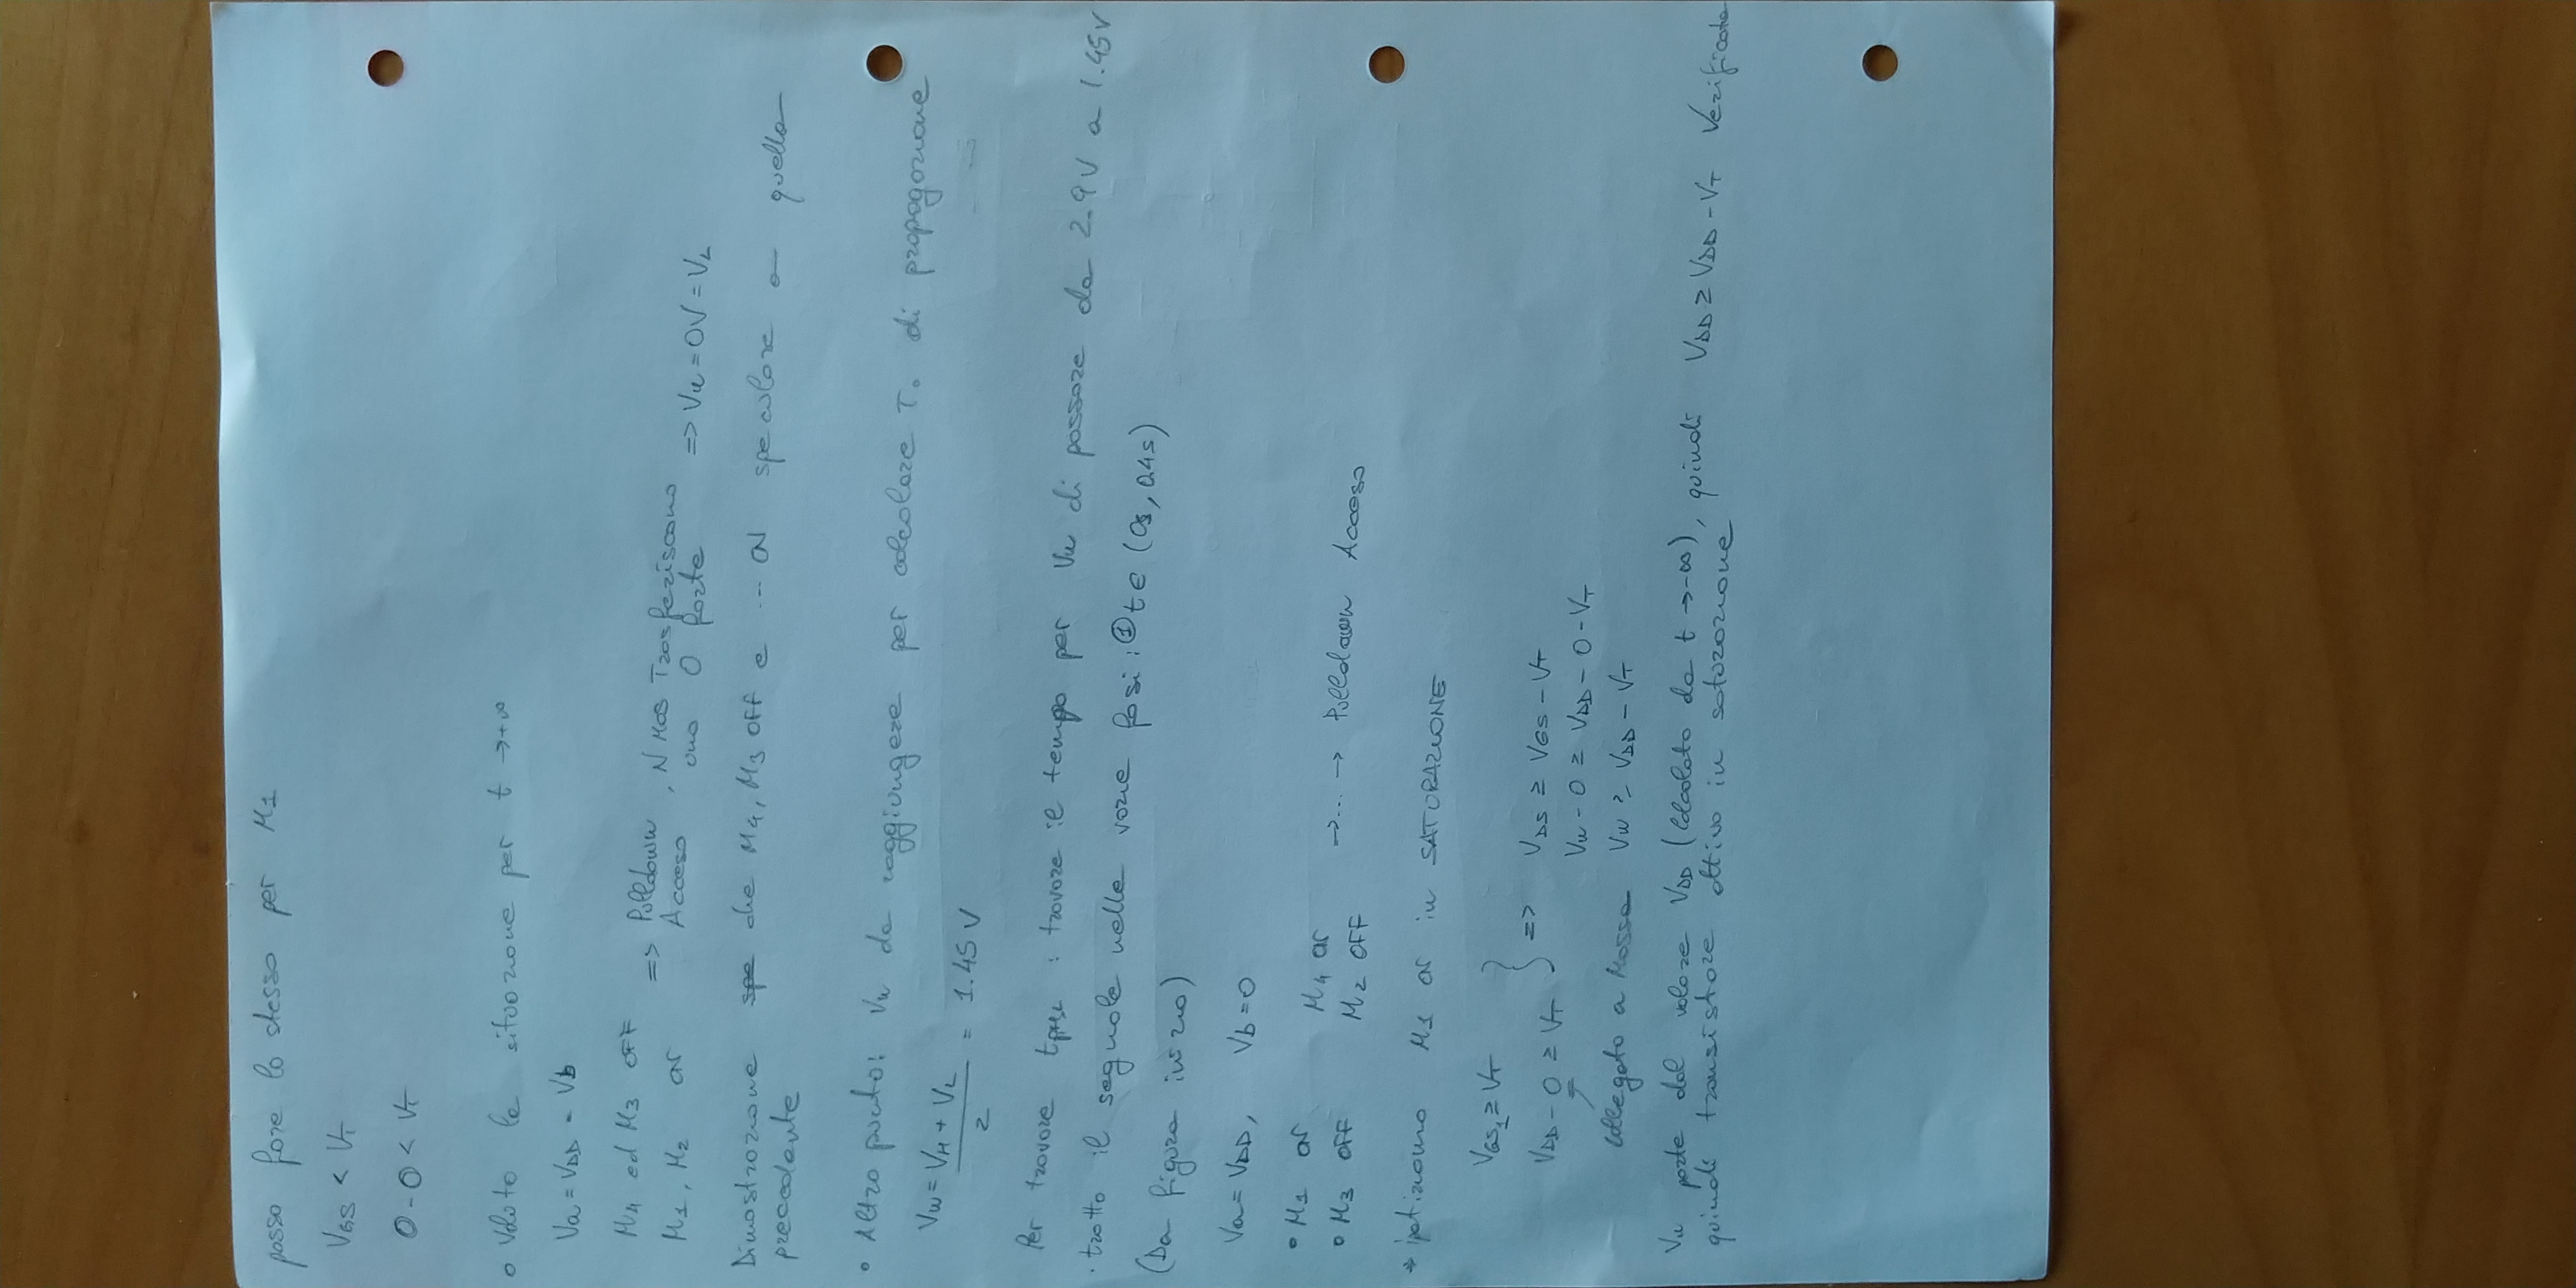 posso fare lo stesso per M1
VGS < VT
0 - 0 < VT
• Valuto la situazione per t → +∞
Va = VDD = Vb
M4 ed M3 OFF
M1, M2 ON
=> Pulldown Acceso, N MOS Trasferiscono uno 0 forte => Vu = 0V = VL
Dimostrazione spe che M4, M3 OFF e ... ON speculare a quella
precedente
• Altro punto: Vu da raggiungere per calcolare T. di propagazione
Vu = (VH + VL) / 2 = 1.45 V
Per trovare tpHL : trovare il tempo per Vu di passare da 2.9V a 1.45V
· tratto il segnale nelle varie fasi: ① t ∈ (0s, 0.4s)
(Da figura inizio)
Va = VDD, Vb = 0
• M1 ON M4 ON
• M3 OFF M2 OFF
→ ... → Pulldown Acceso
→ ipotizziamo M1 ON in SATURAZIONE
VGS1 ≥ VT
VDD - 0 ≥ VT } => VDS ≥ VGS - VT
Vu - 0 ≥ VDD - 0 - VT
collegato a Massa Vu ≥ VDD - VT
Vu parte dal valore VDD (calcolato da t → -∞), quindi VDD ≥ VDD - VT Verificata
quindi transistore attivo in saturazione